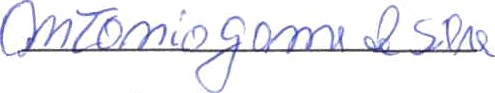 Antonio gomes de Silva